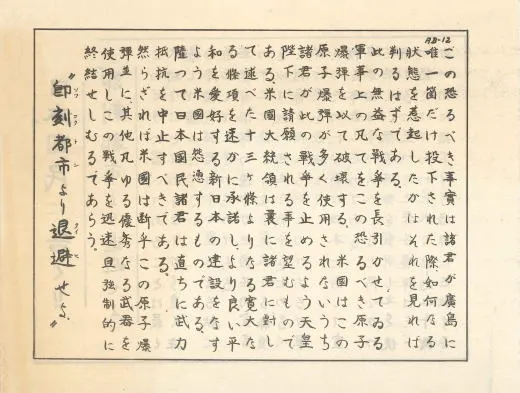 AB-12
この恐るべき事實は諸君が廣島に
唯一箇だけ投下された際如何なる
狀態を惹起したかはそれを見れば
判るはずである。
此の無益な戰爭を長引かせてゐる
軍事上の凡てをこの恐るべき原子
爆彈を以て破壞する。米國はこの
原子爆彈が多く使用されないうち
諸君が此の戰爭を止めるよう天皇
陛下に請願される事を望むもので
ある。米國大統領は曩に諸君に對し
て述べた十三ヶ條よりなる寬大な
る條項を速かに承諾しより良い平
和を愛好する新日本の建設をなす
よう米國は慫慂するものである。
つて日本國民諸君は直ちに武力
抵抗を中止すべきである。
然らざれば米國は斷乎この原子爆
彈並に其他凡ゆる優秀なる武器を
使用しこの戰爭を迅速且强制的に
終結せしむるであらう。
"即刻都市より退避せよ"